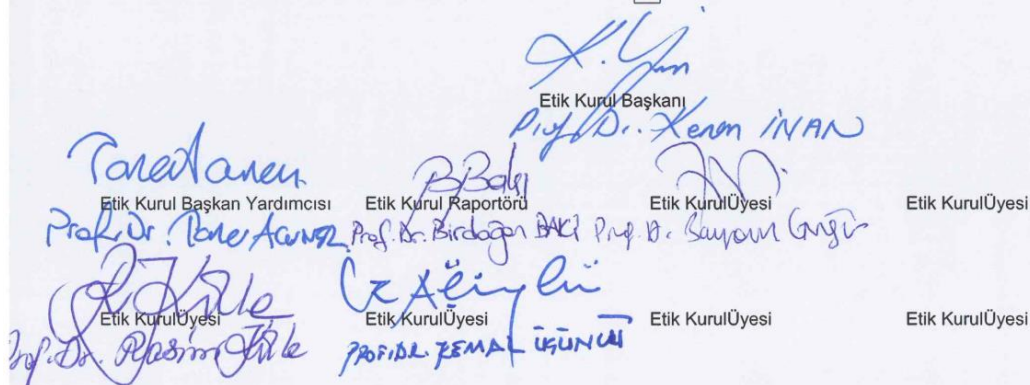 Etik Kurul Başkanı
Prof. Dr. Kenan İNAN
Etik Kurul Başkan Yardımcısı Etik Kurul Raportörü Etik KurulÜyesi Etik KurulÜyesi
Prof. Dr. Prof. Dr. Birdoğan BAKİ Prof. Dr.
Etik KurulÜyesi Etik KurulÜyesi Etik KurulÜyesi Etik KurulÜyesi
Prof. Dr. Rasim PROF. DR. KEMAL ÜÇÜNCÜ